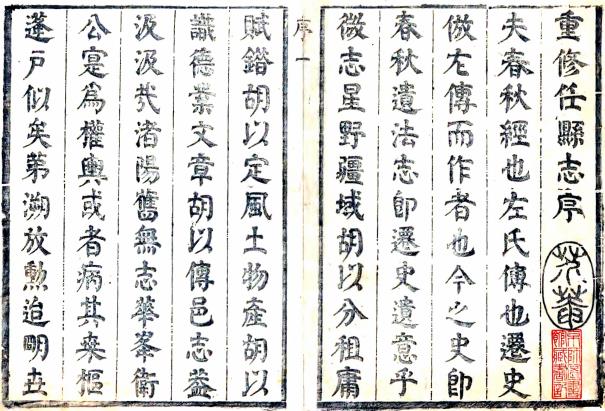 重修任縣志序
夫春秋經也左氏傳也遷史
倣左傳而作者也今之史卽
春秋遺法志卽遷史遺意乎
微志星野疆域胡以分租庸
序 一
賦錯胡以定風土物產胡以
識德業文章胡以傳邑志益
汲汲哉渚陽舊無志華峯衛
公寔爲權輿或者病其朿樞
蓬戶似矣苐溯放勲迨明去